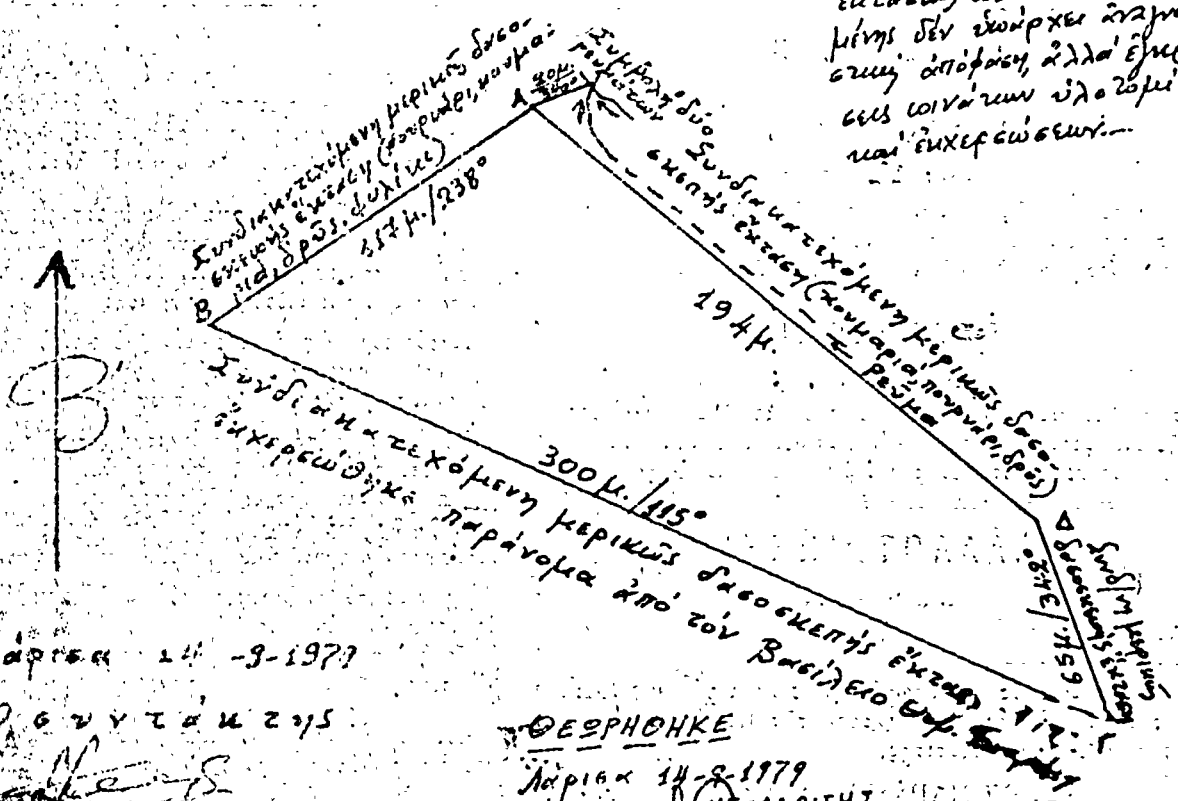 μένης δέν ὑπάρχει ἀναγνω-
στική ἀπόφαση, ἀλλά
ὑλοτομι
καί ἐκχερσώσεων.-
Συνδιακατεχόμενη μερικῶς δασο-
σκεπής ἔκταση (πουρνάρι, κουμα-
ριά, δρῦς, φυλίκι)
157 μ./238°
Α
Β
Συμβολή δύο
ρευμάτων
Συνδιακατεχόμενη μερικῶς δασο-
σκεπής ἔκταση (κουμαριά, πουρνάρι, δρῦς)
ρεῦμα
194 μ.
Β
300 μ./115°
Συνδιακατεχόμενη μερικῶς δασοσκεπής ἔκταση
ἐκχερσώθηκε παράνομα ἀπό τόν Βασίλειο
Δ
65 μ./342°
μερικῶς
δασοσκεπής ἔκταση
Γ
άρισα 14-9-1979
συντάκτης
ΘΕΩΡΗΘΗΚΕ
Λάρισα 14-9-1979